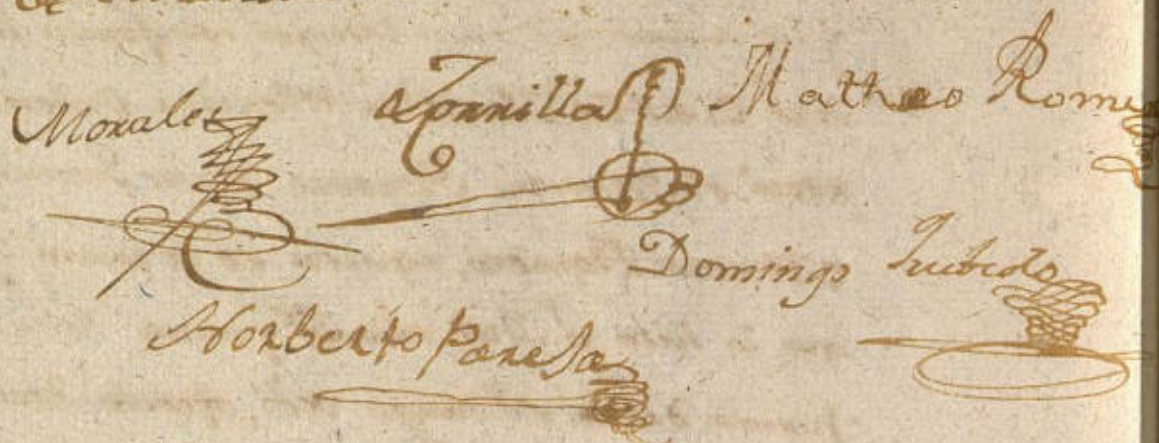 Morales Zorrilla Matheo Rome
Domingo
Norberto Pareja